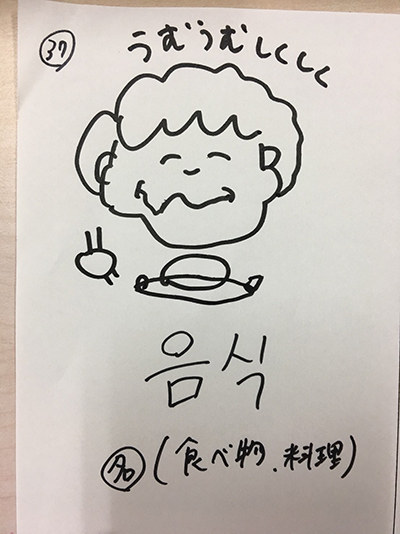 37
うむうむしくしく
음식
名 (食べ物、料理)